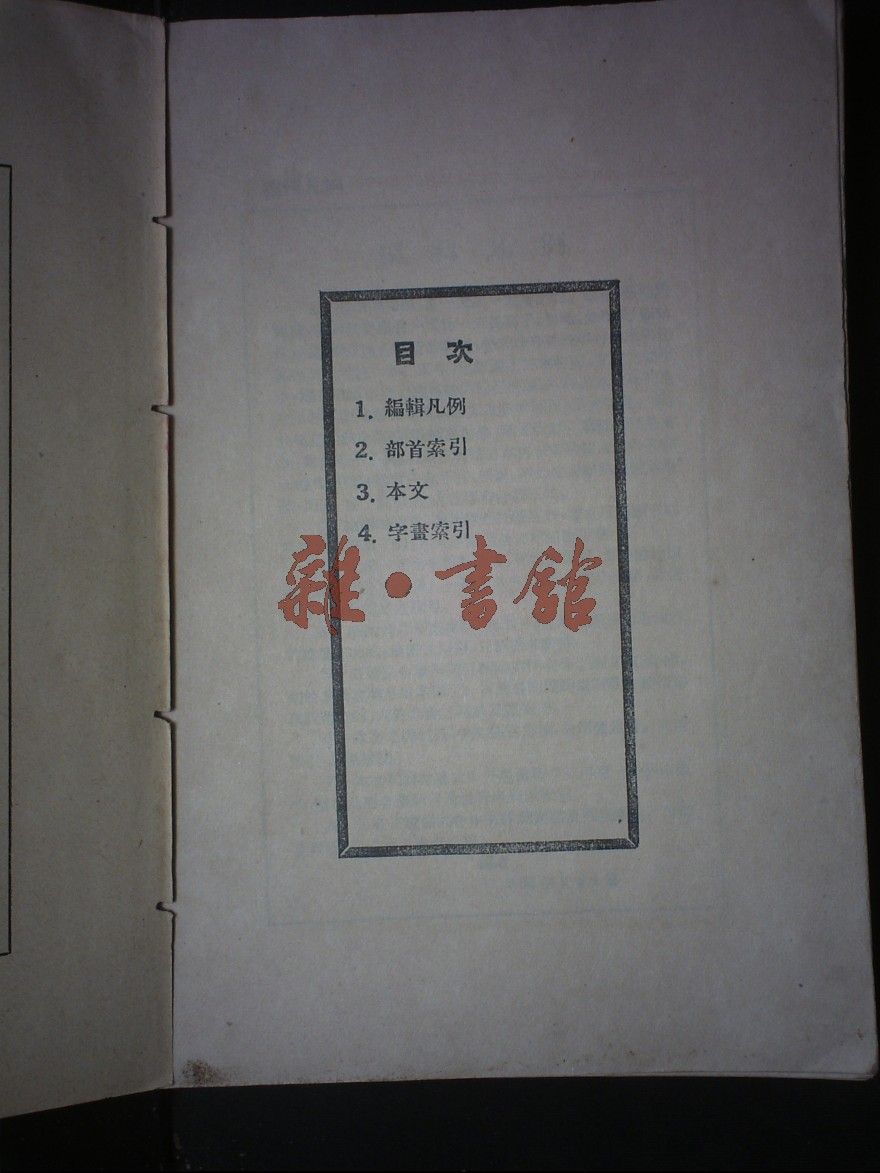 目次
1. 編輯凡例
2. 部首索引
3. 本文
4. 字畫索引
雜·書館